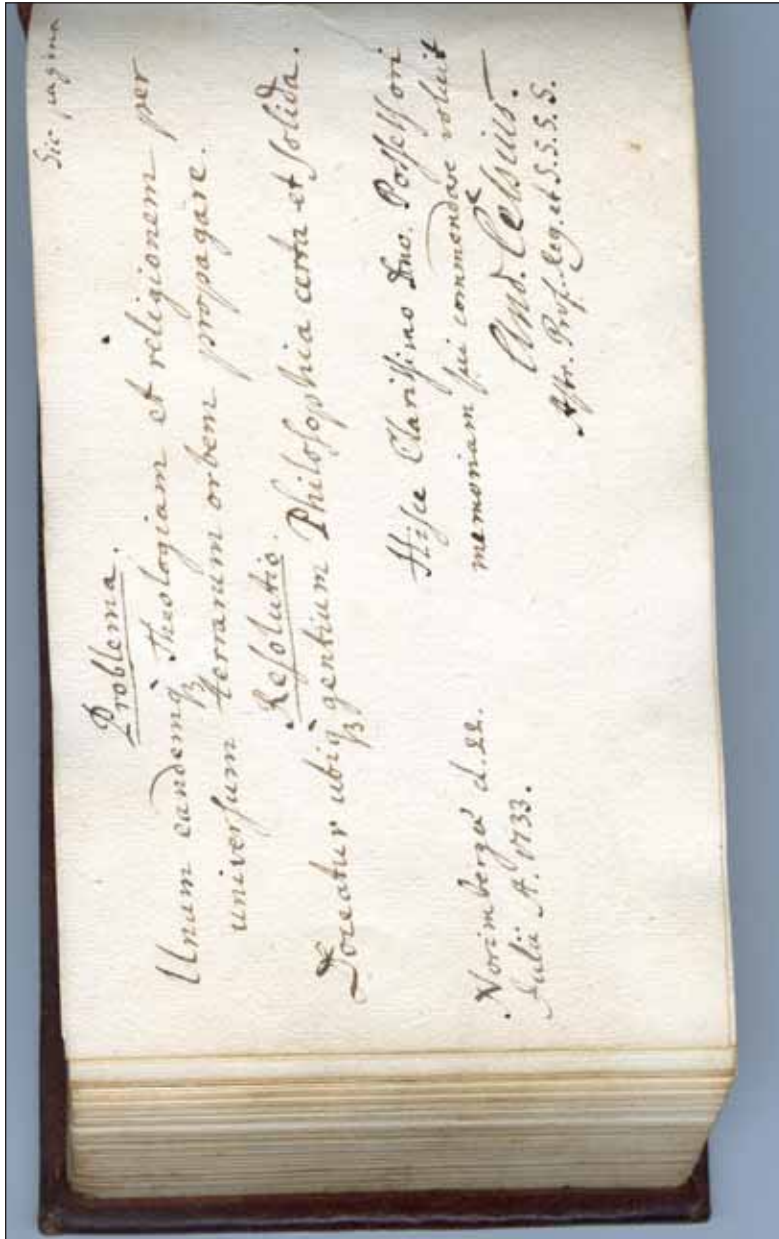 Sic pagina
Problema.
Unam eandemq₃ Theologiam et religionem per
universum terrarum orbem propagare.
Resolutio.
Doceatur ubiq₃ gentium Philosophia certa et solida.
Hisce Clarissimo Dno. Possessori
memoriam sui commendare voluit
And. Celsius.
Astr. Prof. Reg. et S.S.S.S.
Norimbergæ d. 22.
Julii A. 1733.